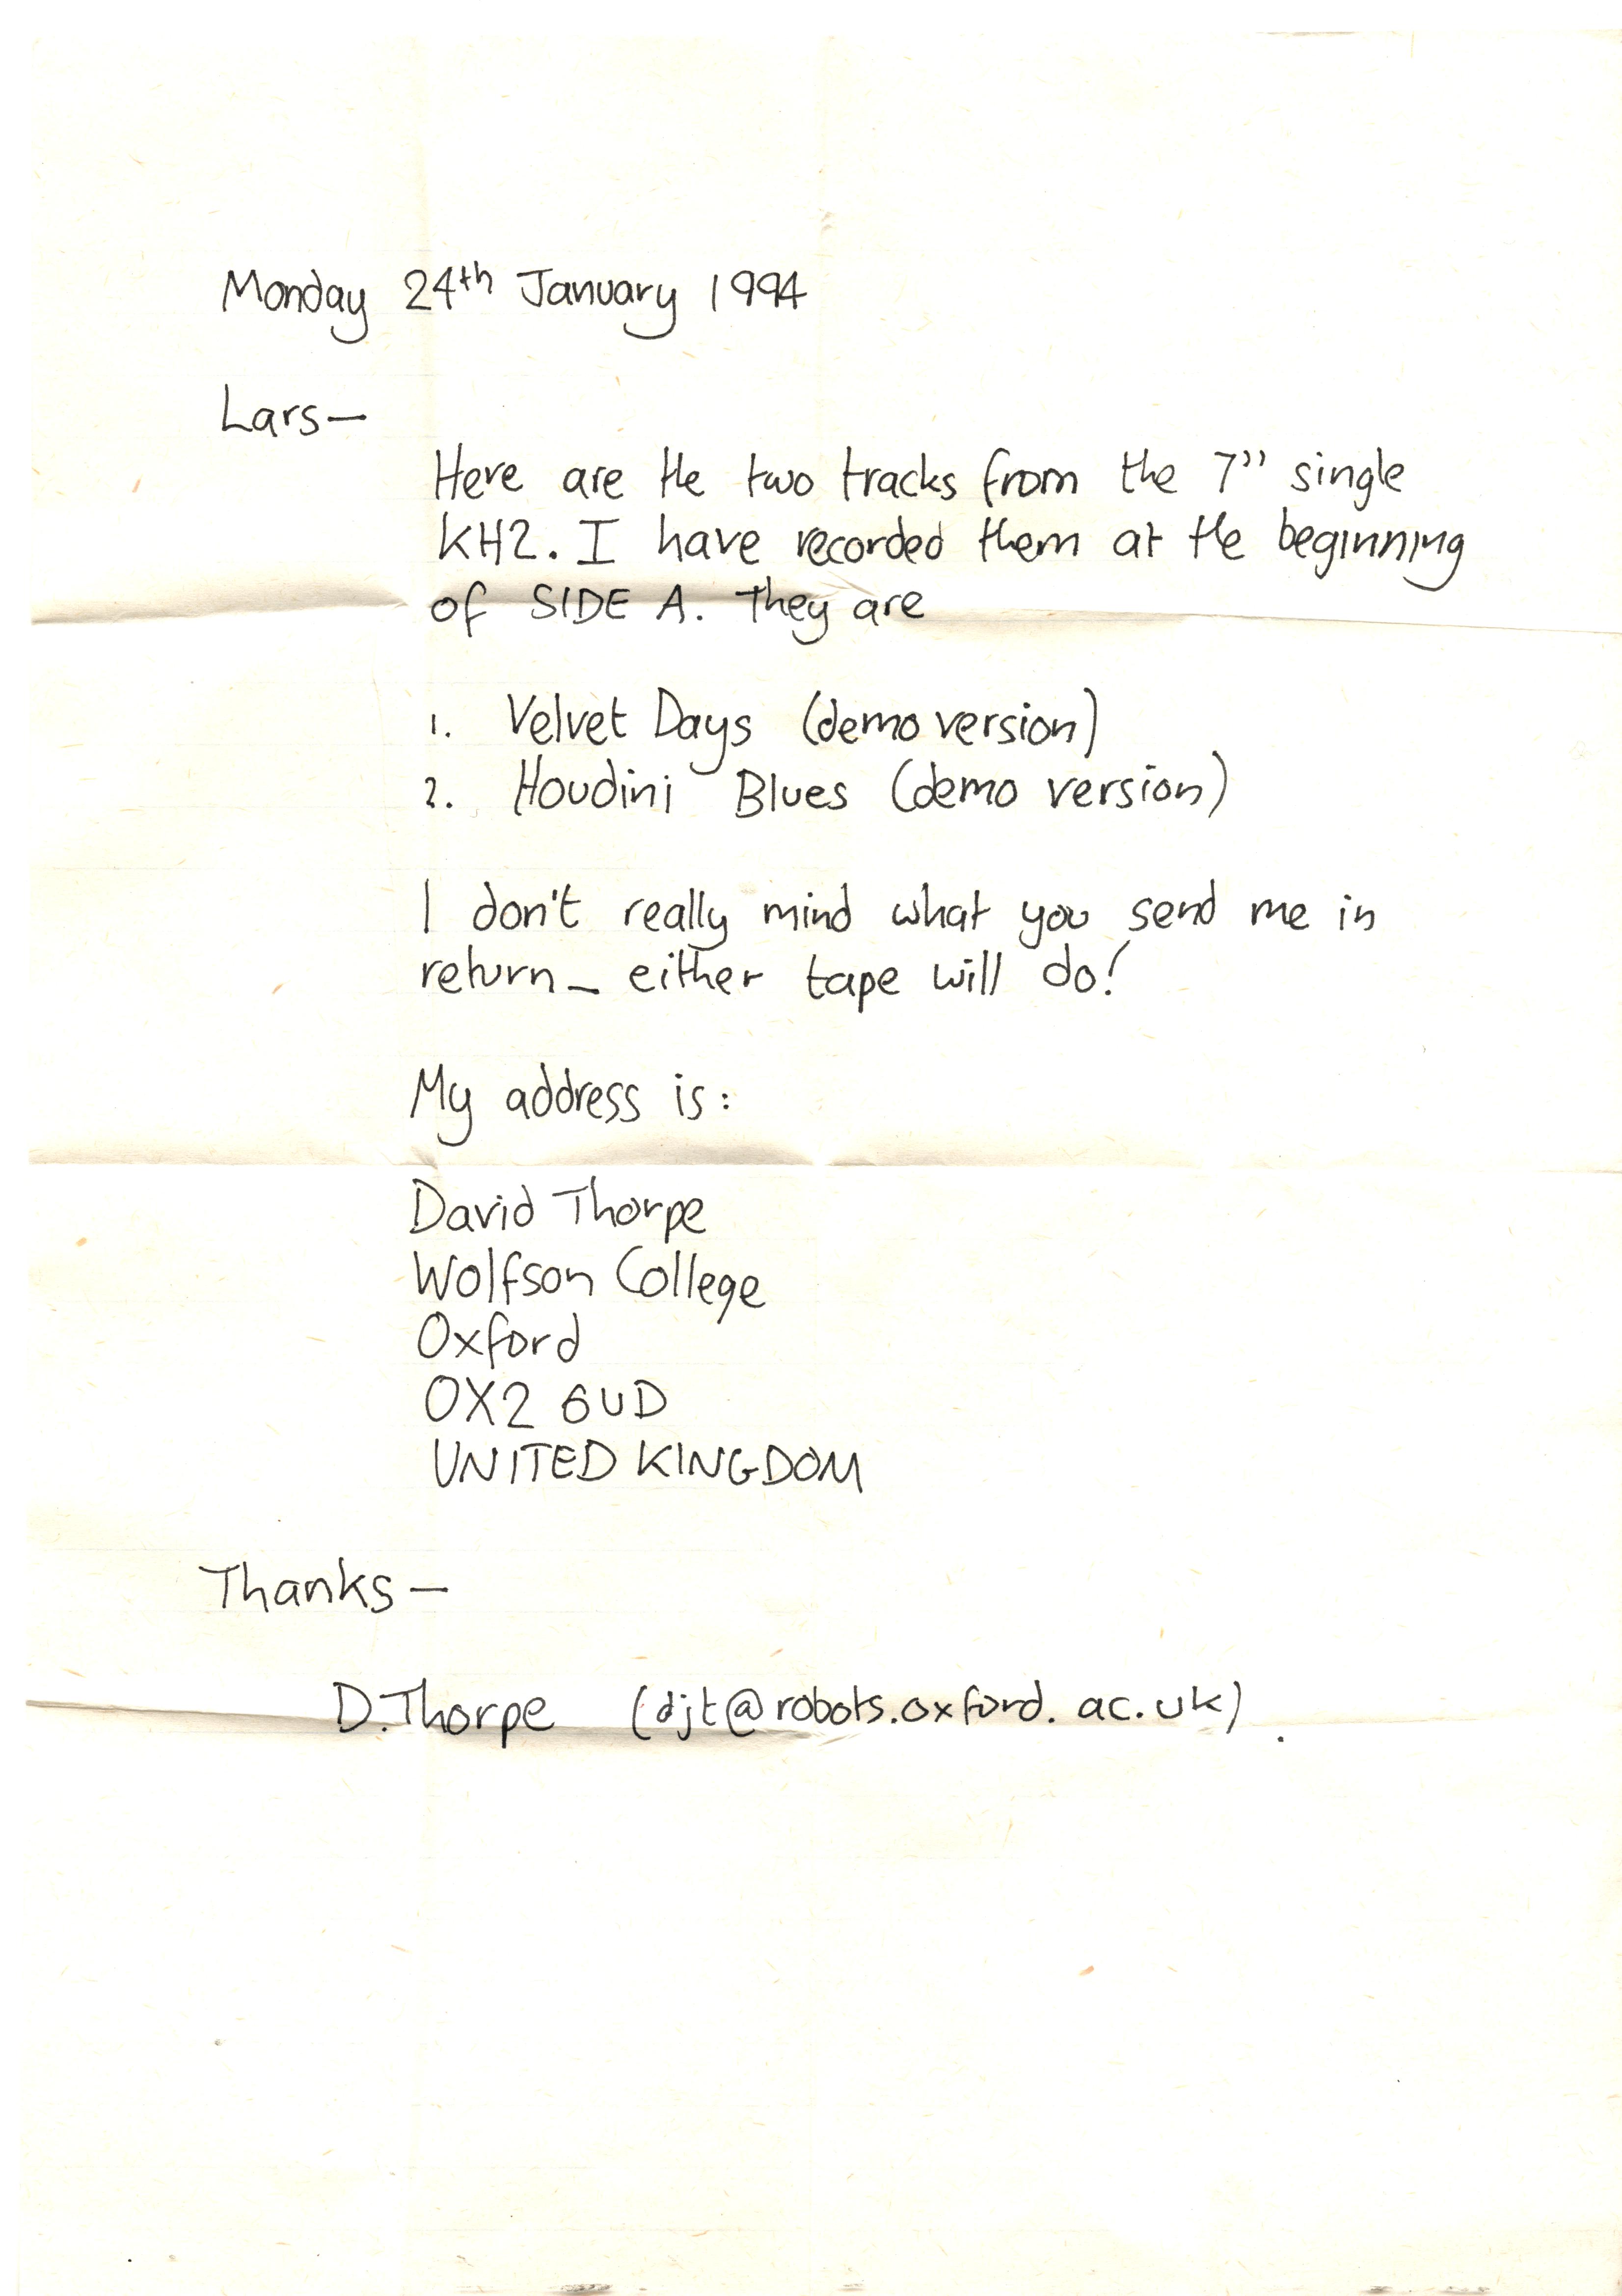 Monday 24th January 1994
Lars—
Here are the two tracks from the 7" single
KH2. I have recorded them at the beginning
of SIDE A. They are
1. Velvet Days (demo version)
2. Houdini Blues (demo version)
I don't really mind what you send me in
return – either tape will do!
My address is:
David Thorpe
Wolfson College
Oxford
OX2 6UD
UNITED KINGDOM
Thanks —
D.Thorpe (djt@robots.oxford.ac.uk).